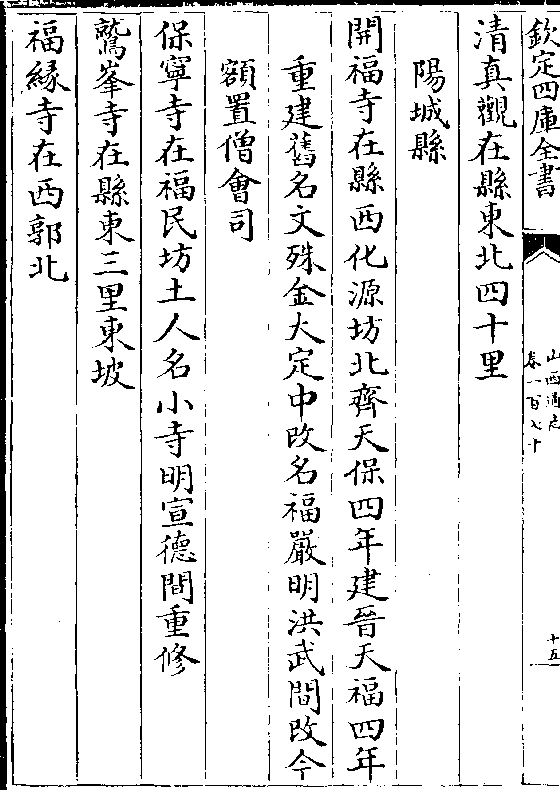 欽定四庫全書
山西通志
卷一百七十
十五
清真觀在縣東北四十里
陽城縣
開福寺在縣西化源坊北齊天保四年建晉天福四年
重建舊名文殊金大定中改名福嚴明洪武間改今
額置僧會司
保寧寺在福民坊土人名小寺明宣德間重修
鷲峯寺在縣東三里東坡
福緣寺在西郭北